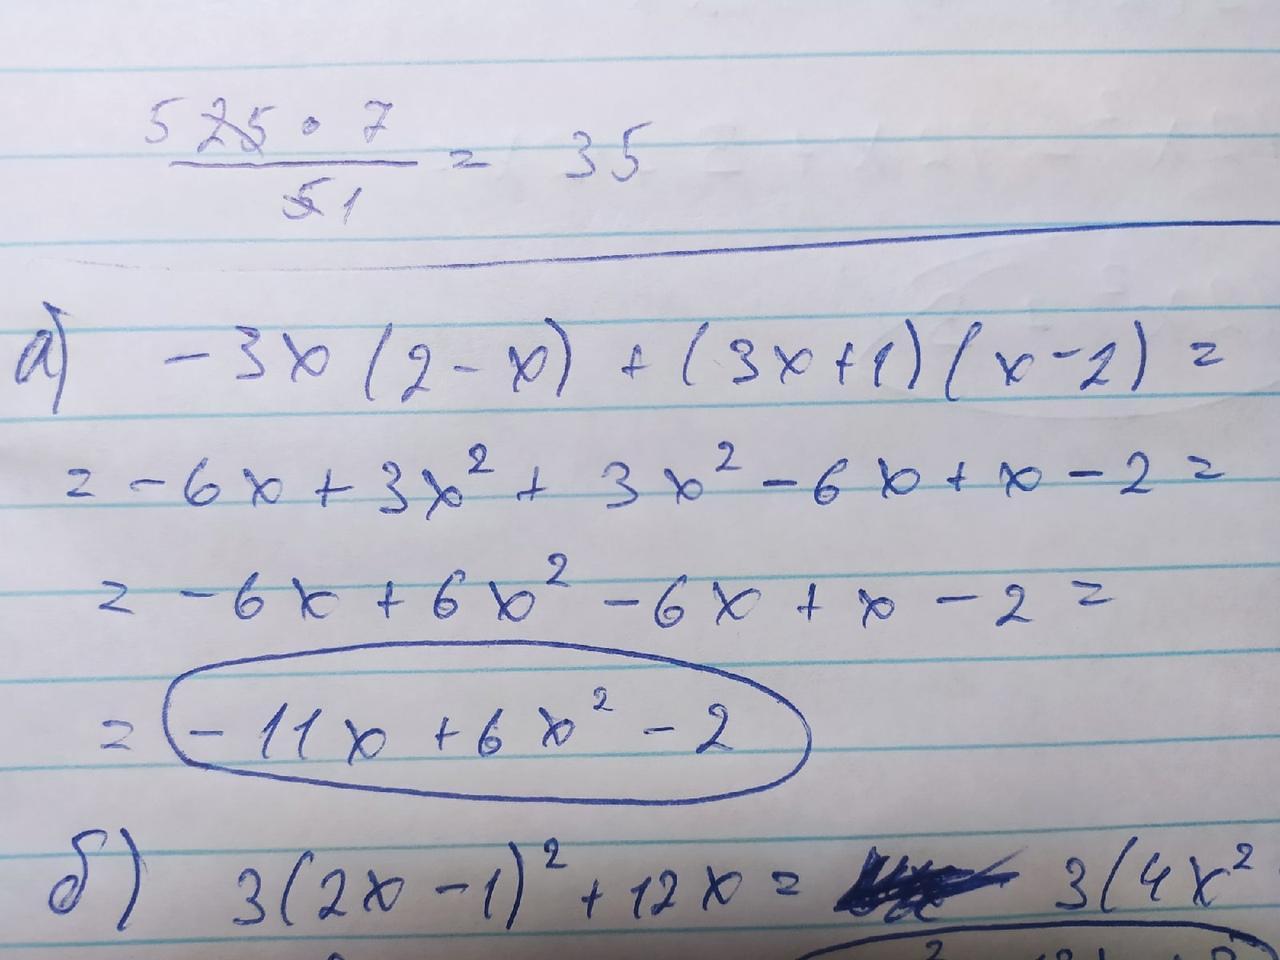 5 25 · 7
51 = 35
а) -3x(2-x) + (3x+1)(x-2) =
= -6x + 3x² + 3x² - 6x + x - 2 =
= -6x + 6x² - 6x + x - 2 =
= -11x + 6x² - 2
б) 3(2x-1)² + 12x = 3(4x²